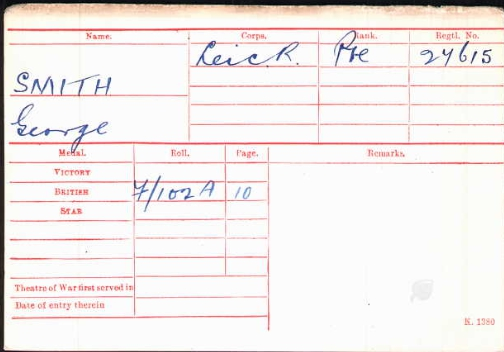 Name. Corps. Rank. Regtl. No.
Leic. R. Pte 27615
SMITH
George
Medal. Roll. Page. Remarks.
VICTORY
BRITISH 7/102A 10
STAR
Theatre of War first served in
Date of entry therein
K. 1380